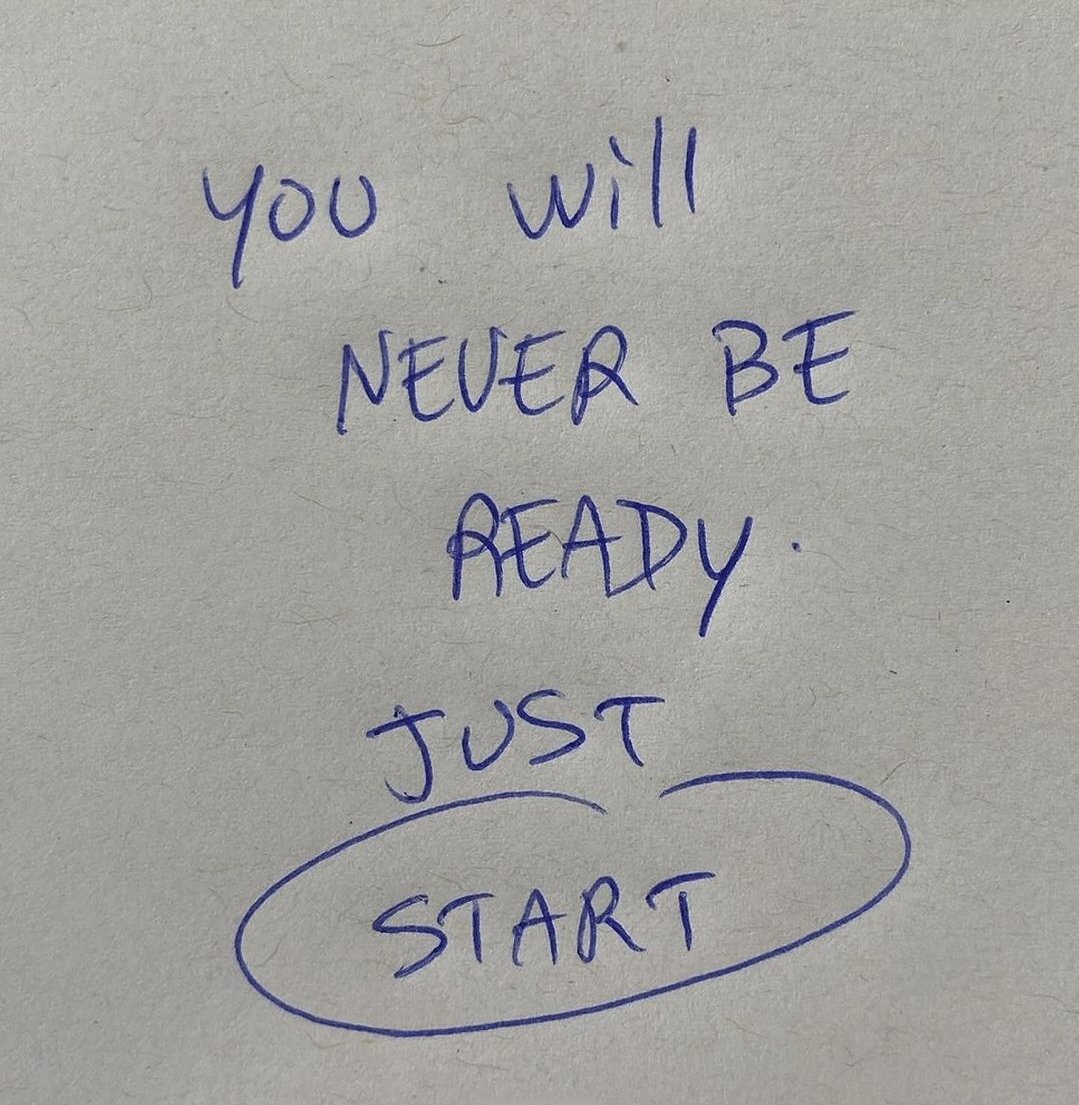 YOU will
NEVER BE
READY.
JUST
START